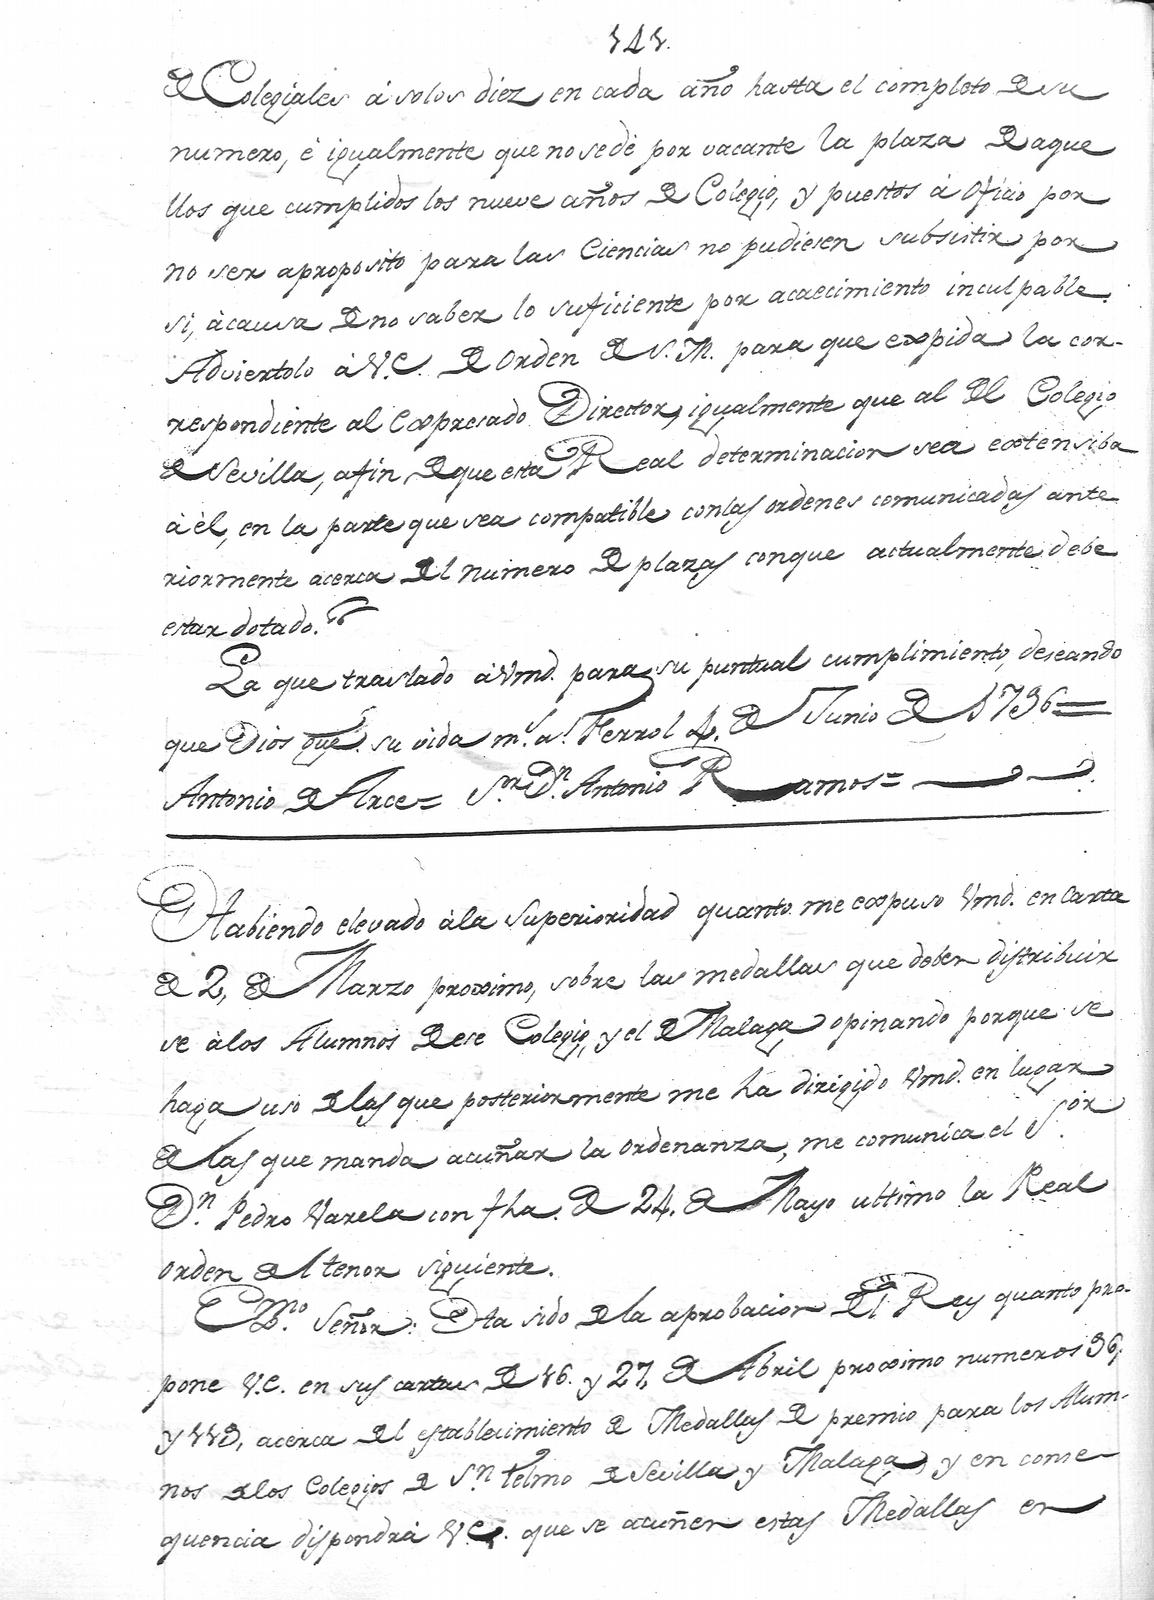 141.
de Colegiales á solos diez en cada año hasta el completo de su
numero, é igualmente que no se dé por vacante la plaza de aque
llos que cumplidos los nueve años de Colegio, y puestos á oficio por
no ser aproposito para las Ciencias no pudiesen subsistir por
si, àcausa de no saber lo suficiente por acaecimiento inculpable.
Adviertolo á V.E. de orden de S.M. para que expida la cor-
respondiente al Expresado Director, igualmente que al del Colegio
de Sevilla, afin de que esta Real determinacion sea extensiba
à èl, en la parte que sea compatible con las ordenes comunicadas ante
riormente acerca del numero de plazas conque actualmente debe
estar dotado.
La que traslado à Vmd. para su puntual cumplimiento, deseando
que Dios gue. su vida ms. as. Ferrol 4. de Junio de 1796=
Antonio de Arce= Sor. Dn. Antonio Ramos=
Habiendo elevado àla Superioridad quanto me expuso Vmd. en Carta
de 2, de Marzo proximo, sobre las medallas que deben distribuir
se àlos Alumnos de ese Colegio, y el de Malaga opinando porque se
haga uso de las que posteriormente me ha dirigido Vmd. en lugar
de las que manda acuñar la ordenanza, me comunica el Sor.
Dn. Pedro Varela con fha. de 24. de Mayo ultimo la Real
orden del tenor siguiente.
Exmo. Señor: Ha sido de la aprobacion del Rey quanto pro-
pone V.E. en sus cartas de 16. y 27, de Abril proximo numeros 96,
y 113, acerca del establecimiento de Medallas de premio para los Alum-
nos de los Colegios de Sn. Telmo de Sevilla y Malaga, y en conse
quencia dispondrá V.E. que se acuñen estas Medallas en